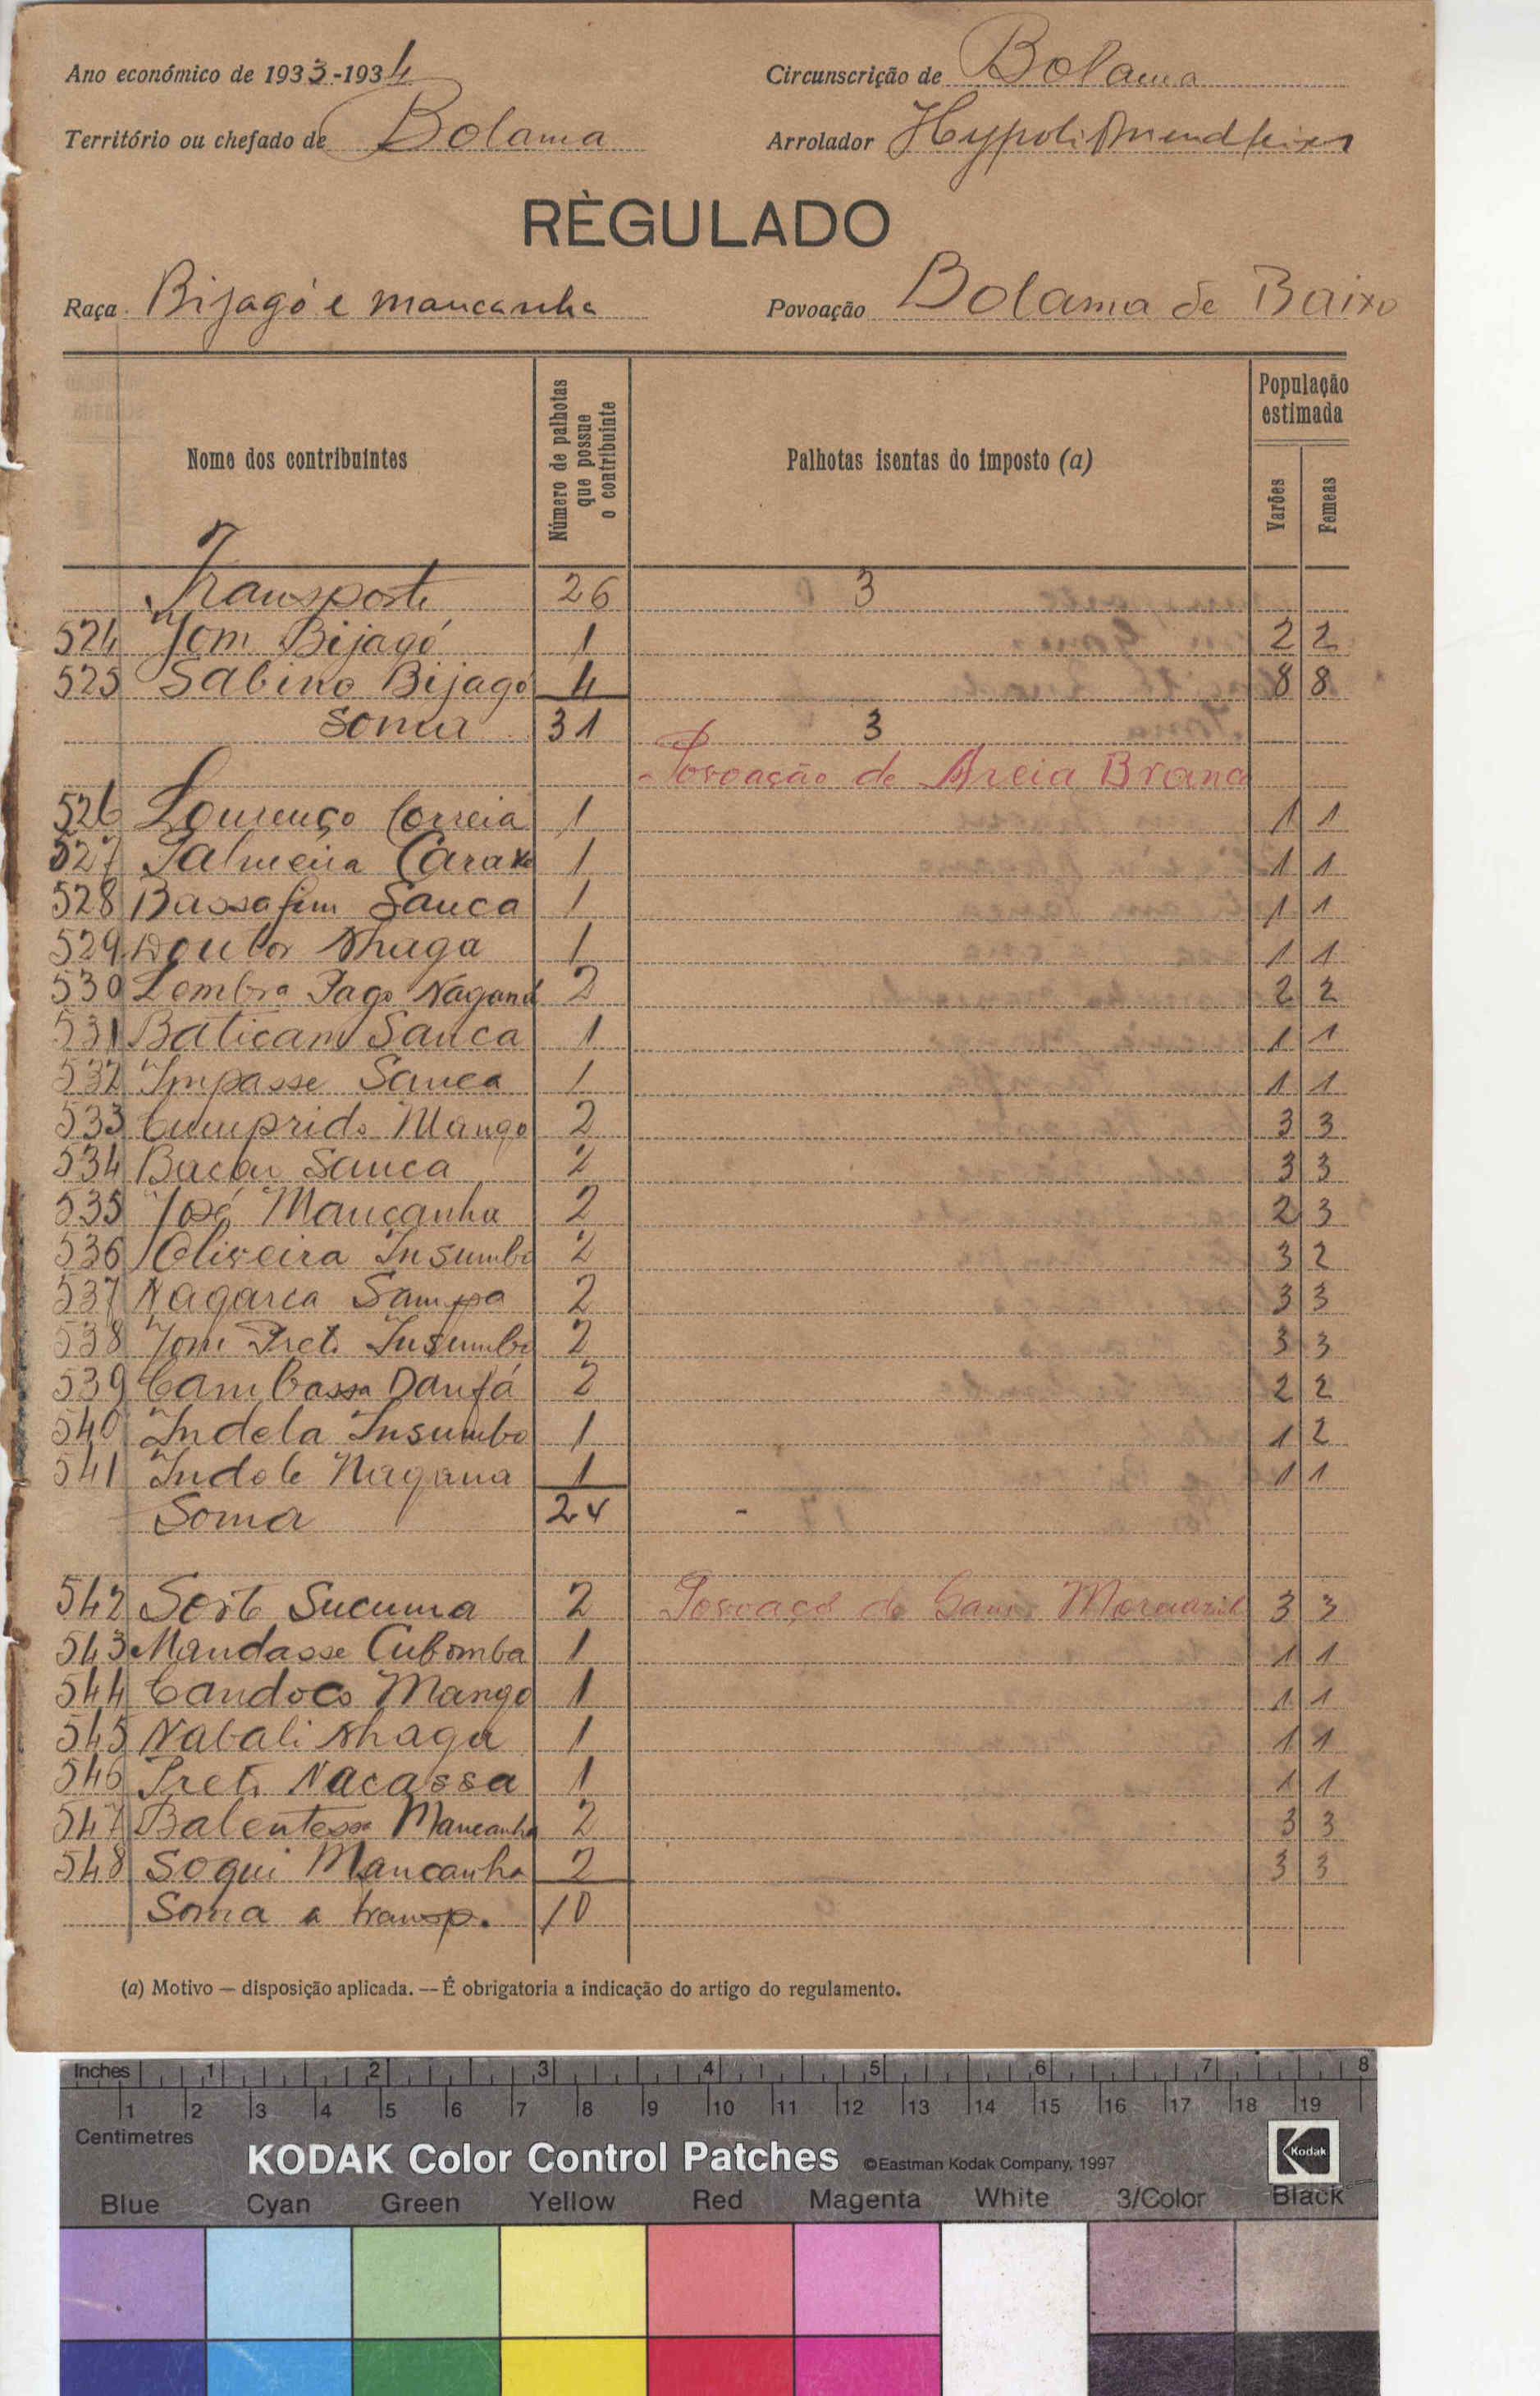 Ano económico de 1933-1934 Circunscrição de Bolama
Território ou chefado de Bolama Arrolador
RÈGULADO
Raça Bijagó e mancanha Povoação Bolama de Baixo
Nome dos contribuintes Número de palhotas que possue o contribuinte Palhotas isentas do imposto (a) População estimada Varões Femeas
Transporte 26 3
524 Jom Bijagó 1 2 2
525 Sabino Bijagó 4 8 8
Soma 31 3
Povoação de Areia Branca
526 Lourenço Correia 1 1 1
527 Palmeira 1 1 1
528 Bassafim Sanca 1 1 1
529 Doutor Nhaga 1 1 1
530 Lembra Pago Nágana 2 2 2
531 Baticam Sanca 1 1 1
532 Impasse Sanca 1 1 1
533 Cumprido Mango 2 3 3
534 Bacar Sanca 2 3 3
535 José Mancanha 2 2 3
536 Oliveira Insumbo 2 3 2
537 Nagarca Sampa 2 3 3
538 Jom Preto Insumbo 2 3 3
539 Cambassa Danfá 2 2 2
540 Indela Insumbo 1 1 2
541 Indole Nagana 1 1 1
Soma 24 -
542 Sucuma 2 Povoação de 3 3
543 Mandasse Cubomba 1 1 1
544 Candoco Mango 1 1 1
545 Nabali Nhaga 1 1 1
546 Preto Nacassa 1 1 1
547 Balentesse Mancanha 2 3 3
548 Soqui Mancanha 2 3 3
Soma a transp. 10
(a) Motivo — disposição aplicada. — É obrigatoria a indicação do artigo do regulamento.
Inches 1 2 3 4 5 6 7 8
1 2 3 4 5 6 7 8 9 10 11 12 13 14 15 16 17 18 19
Centimetres
KODAK Color Control Patches ©Eastman Kodak Company, 1997 Kodak
Blue Cyan Green Yellow Red Magenta White 3/Color Black